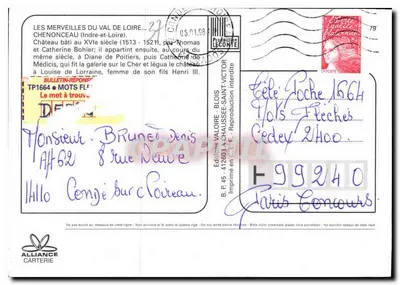 LES MERVEILLES DU VAL DE LOIRE
CHENONCEAU (Indre-et-Loire).
Château bâti au XVIe siècle (1513 - 1521), par Thomas
et Catherine Bohier ; il appartint ensuite, au cours du
même siècle, à Diane de Poitiers, puis Catherine de
Médicis, qui fit la galerie sur le Cher et légua le château
à Louise de Lorraine, femme de son fils Henri III.
BULLETIN-RÉPONSE
TP1664 ● MOTS FL
Le mot à trouv
Monsieur BRUNET Denis
8 rue Neuve
14110 Condé sur Noireau
ALLIANCE
CARTERIE
Editions VALOIRE - BLOIS
B. P. 45 - 41260 LA CHAUSSEE-SAINT-VICTOR
Imprimé en - Reproduction interdite
05.01.98
79
Télé Poche 1664
Mots Fléches
Cedex 2400
99240
Paris Concours